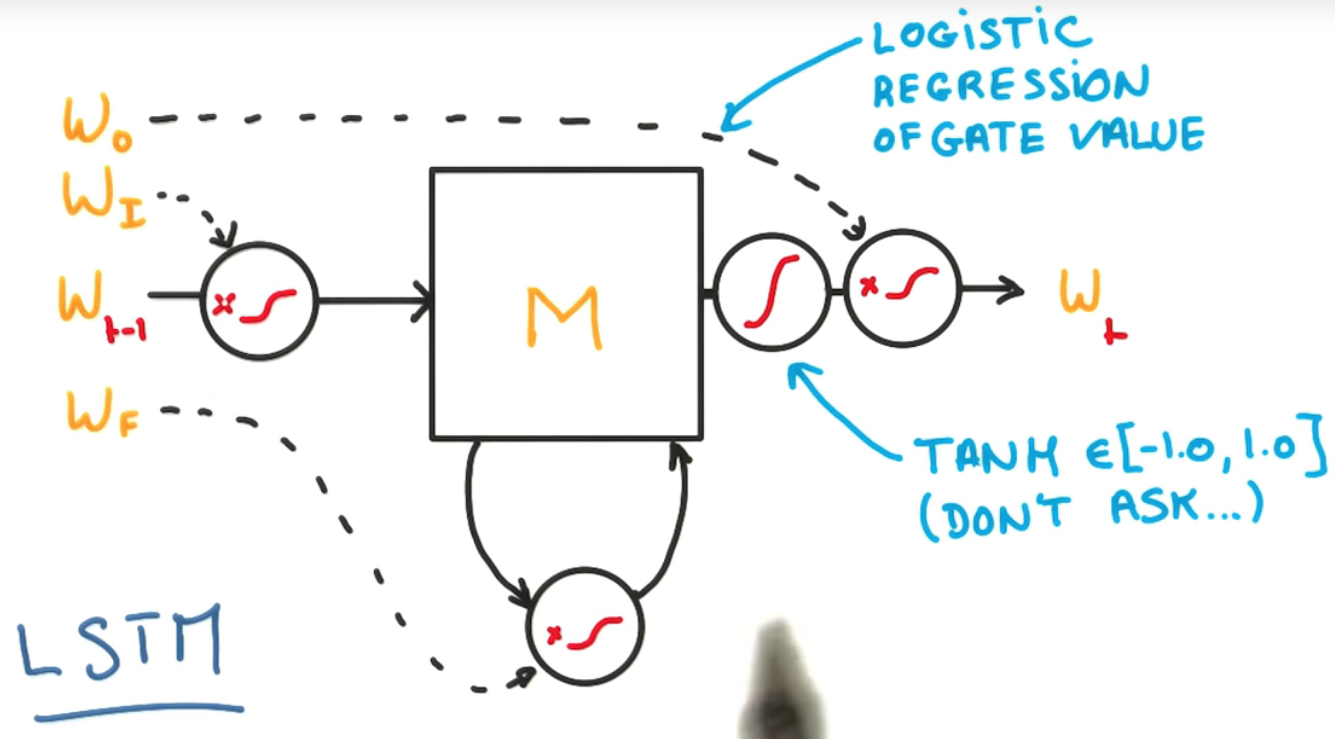 LOGISTIC
REGRESSION
OF GATE VALUE
W_O
W_I
W_t-1
M
W_t
W_F
TANH ∈[-1.0, 1.0]
(DON'T ASK...)
LSTM